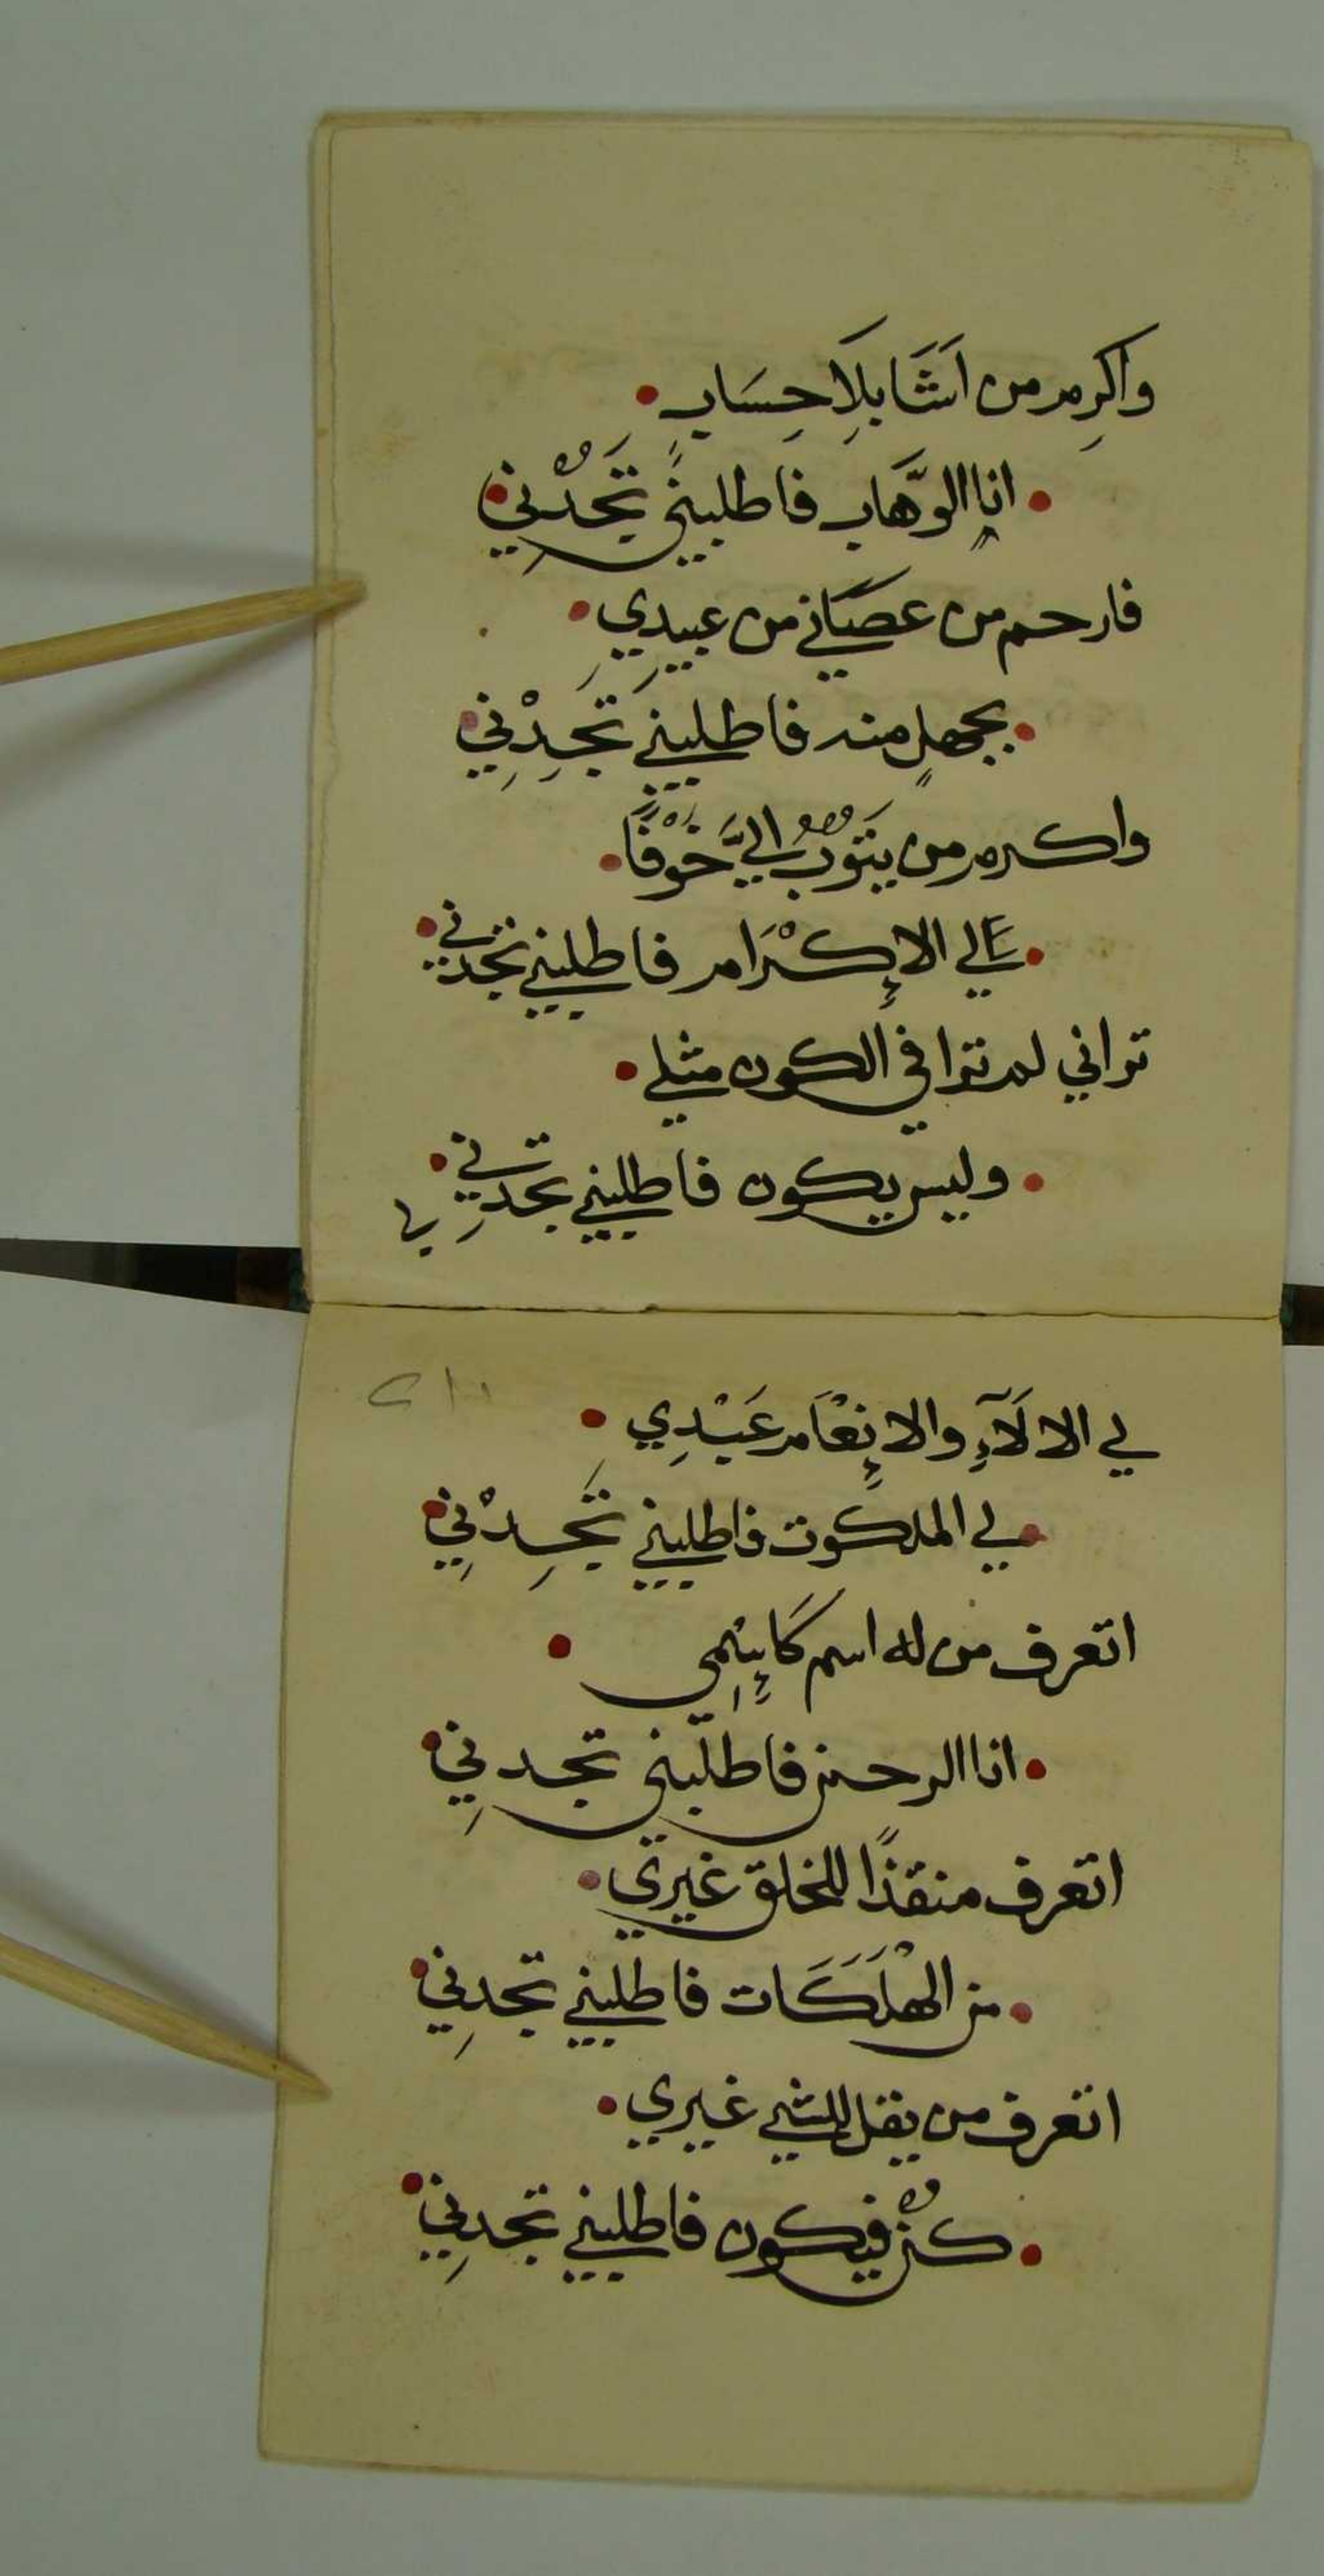 واكرِم من اَشَا بِلَا حِسَابٍ
انا الوَّهاب فاطلبني تَجدْني
فارحم من عصَاني من عبيدِي
بجهلٍ منه فاطلبني تَجِدْنِي
واكرم من يَتوُبُ اليَّ خَوْفًا
عَلي الإكْرَام فاطلبني تجدني
تراني لم ترا في الكون مثلي
وليس يكون فاطلبني تجدِني
لي
لي الالَآءِ والاِنعَام عَبْدِي
لي الملكوت فاطلبني تَجِدْنِي
اتعرف من له اسم كَاِسْمِي
انا الرحمن فاطلبني تجدنِي
اتعرف منقذًا للخلق غيري
من الهْلَكَات فاطلبني تجدنِي
اتعرف من يقل للشي غيري
كُن فيكون فاطلبني تجدنِي